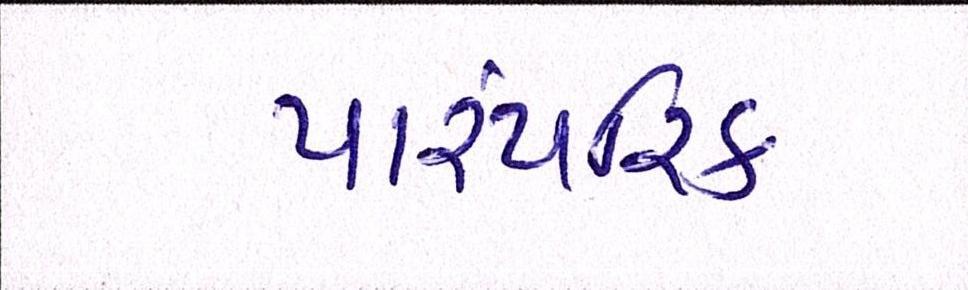 પારંપરિક